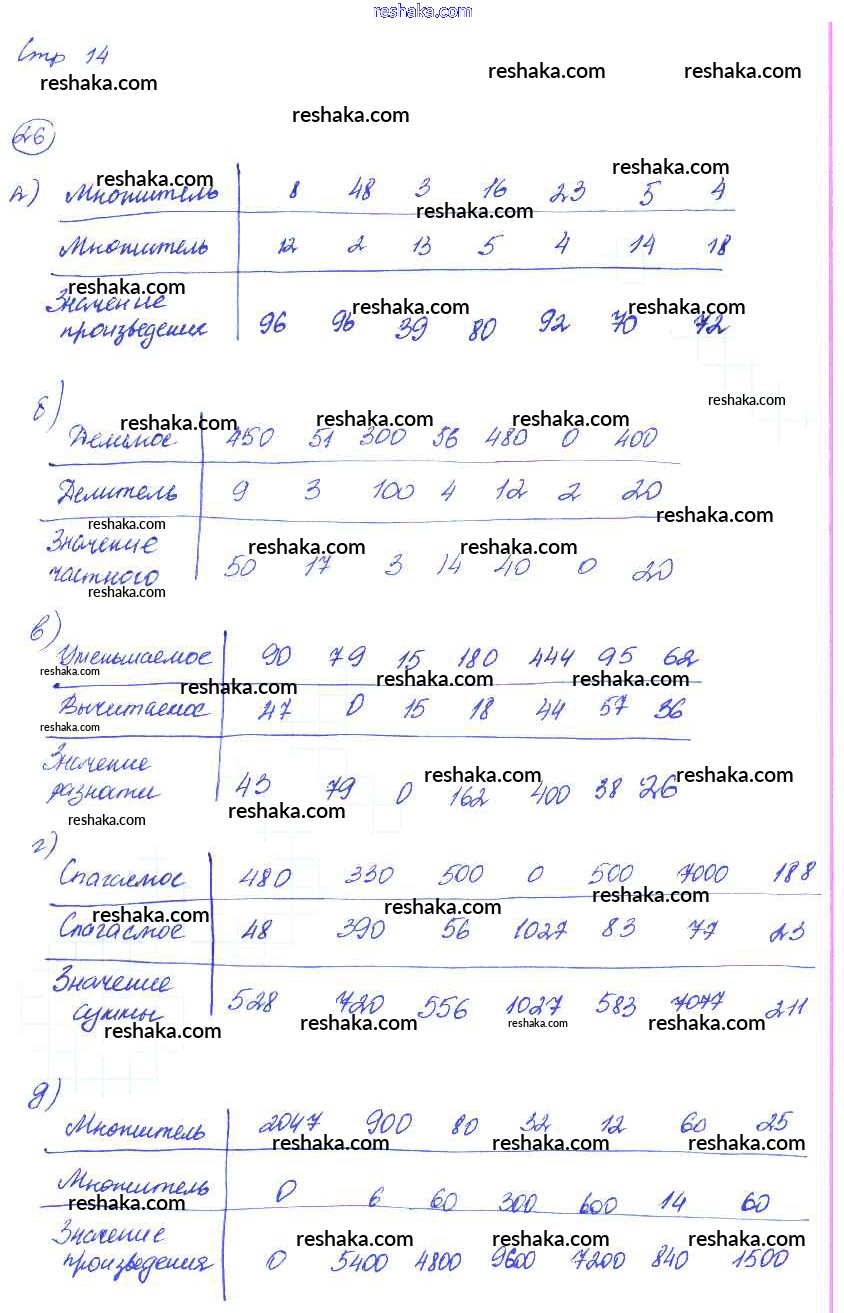 reshaka.com
Стр 14
reshaka.com reshaka.com reshaka.com
reshaka.com
26
reshaka.com reshaka.com
а) Множитель 8 48 3 16 23 5 4
reshaka.com
Множитель 12 2 13 5 4 14 18
reshaka.com
Значение reshaka.com reshaka.com
произведения 96 96 39 80 92 70 72
reshaka.com
б)
reshaka.com reshaka.com reshaka.com
Делимое 450 51 300 56 480 0 400
Делитель 9 3 100 4 12 2 20
reshaka.com reshaka.com
Значение reshaka.com reshaka.com
частного 50 17 3 14 40 0 20
reshaka.com
в)
Уменьшаемое 90 79 15 180 444 95 62
reshaka.com reshaka.com reshaka.com reshaka.com
Вычитаемое 47 0 15 18 44 57 36
reshaka.com
Значение reshaka.com reshaka.com
разности 43 79 0 162 400 38 26
reshaka.com reshaka.com
г)
Слагаемое 480 330 500 0 500 7000 188
reshaka.com reshaka.com reshaka.com
Слагаемое 48 390 56 1027 83 77 23
Значение
суммы 528 720 556 1027 583 7077 211
reshaka.com reshaka.com reshaka.com reshaka.com
д)
Множитель 2047 900 80 32 12 60 25
reshaka.com reshaka.com reshaka.com
Множитель 0 6 60 300 600 14 60
reshaka.com
Значение reshaka.com reshaka.com reshaka.com
произведения 0 5400 4800 9600 7200 840 1500